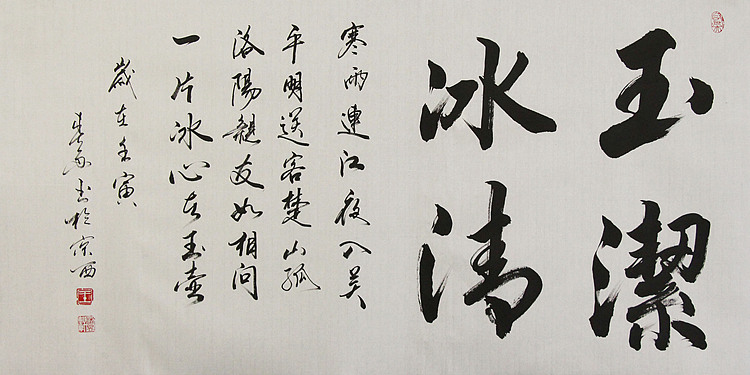 玉潔
冰清
寒雨連江夜入吴
平明送客楚山孤
洛陽親友如相问
一片冰心在玉壶
歲在壬寅
书於京西